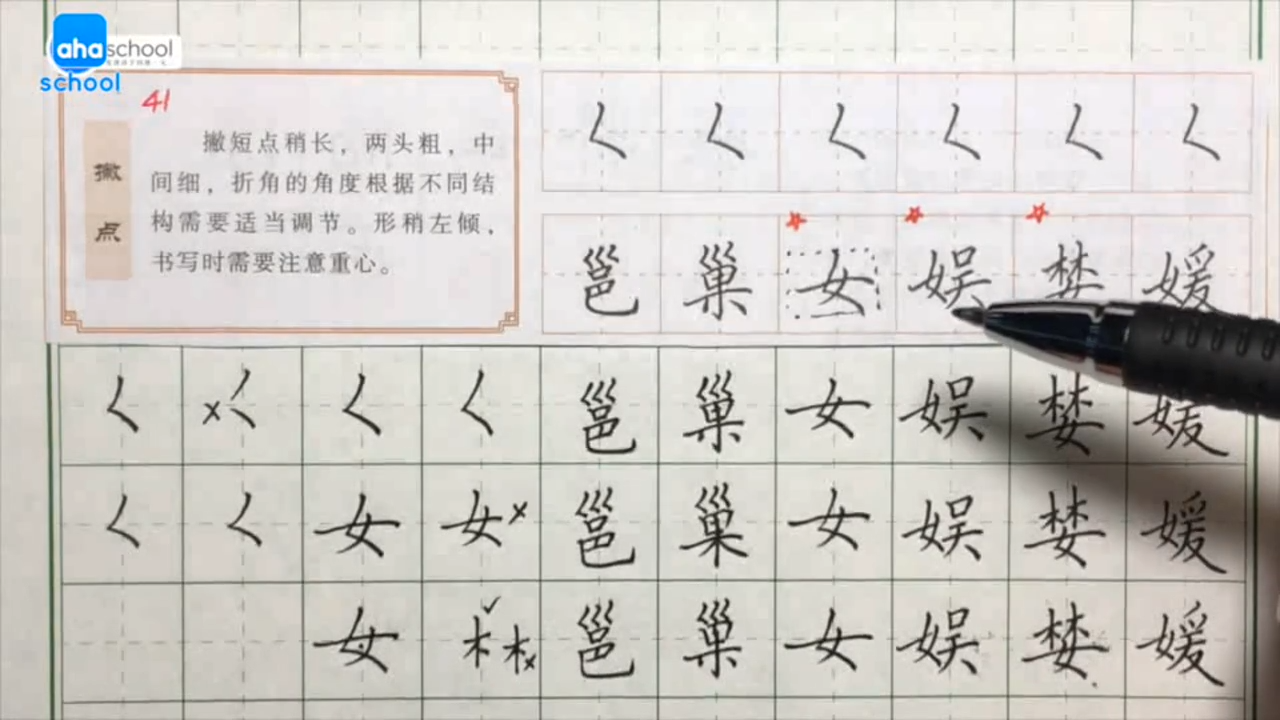 aha school
school
41
撇点
撇短点稍长，两头粗，中
间细，折角的角度根据不同结
构需要适当调节。形稍左倾，
书写时需要注意重心。
𡿨 𡿨 𡿨 𡿨 𡿨 𡿨
邕 巢 女 娱 婪 媛
𡿨 × 𡿨 𡿨 𡿨 邕 巢 女 娱 婪 媛
𡿨 𡿨 女 女 × 邕 巢 女 娱 婪 媛
女 木 ✓ 木 × 邕 巢 女 娱 婪 媛